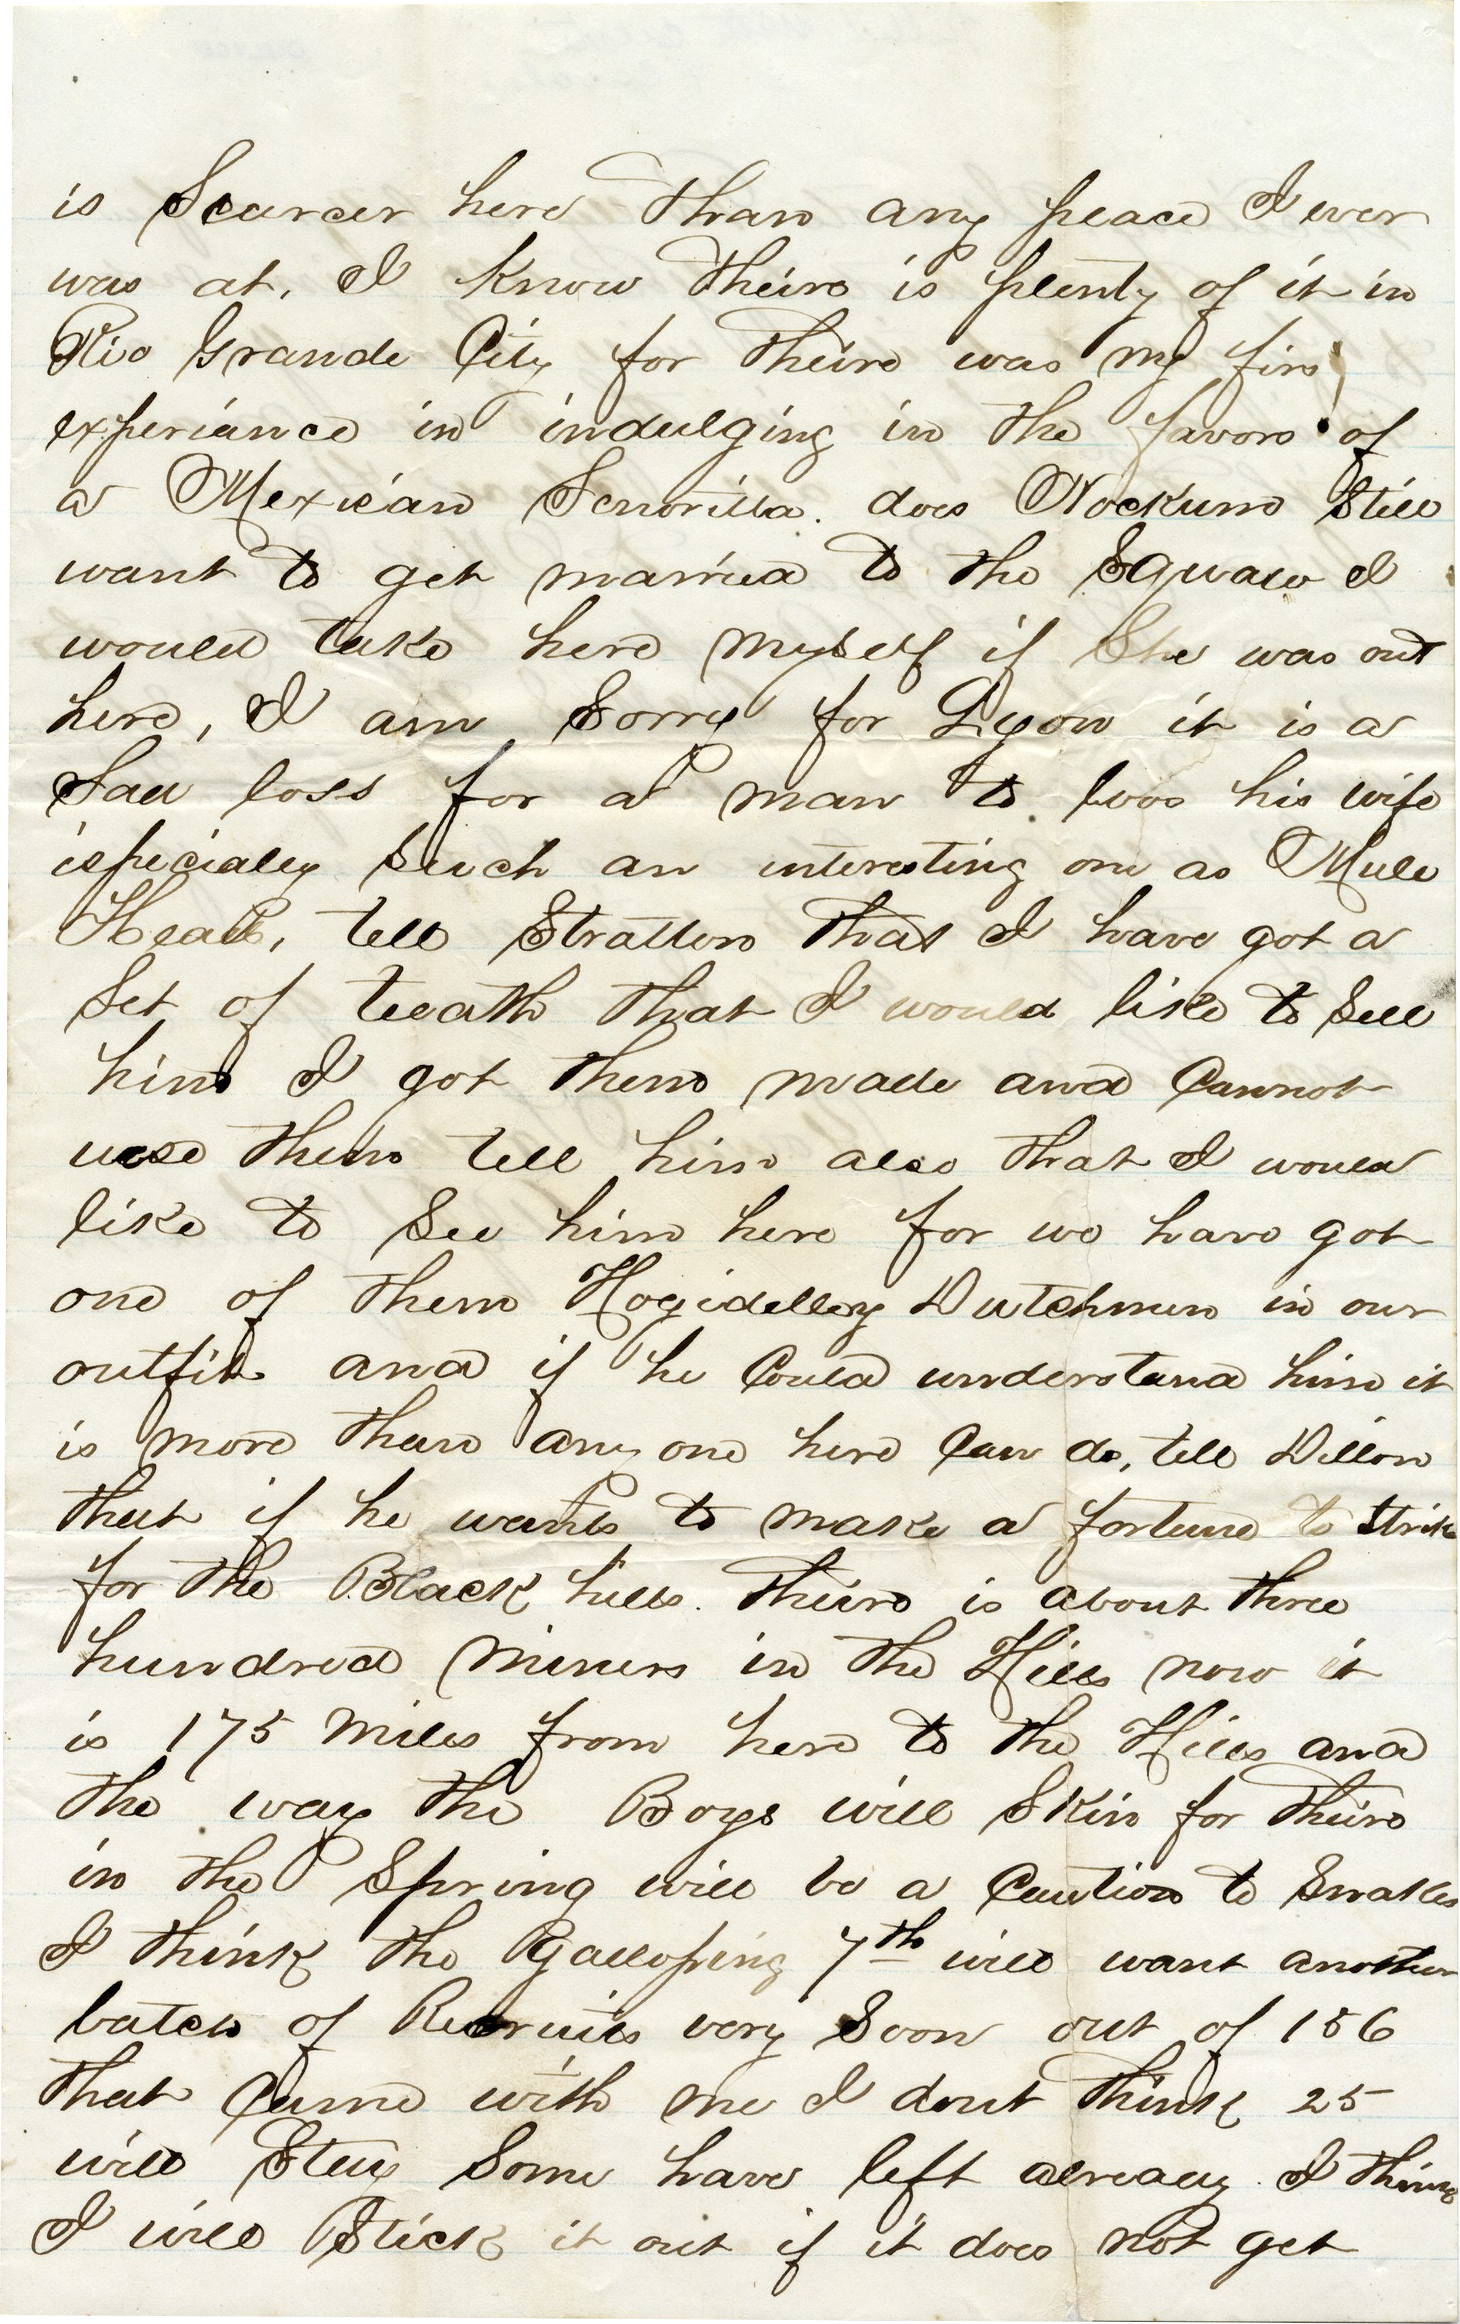 is Scarcer here than any peace I ever
was at, I know theire is plenty of it in
Rio Grande City for theire was my firs
experiance in indulging in the favors of
a Mexican Senorilla. does Nockum Still
want to get married to the Squaw I
would take here myself if She was out
here, I am Sorry for Lyon it is a
Sad loss for a man to loos his wife
ispecially Such an interesting one as Mule
Head, tell Stratton that I have got a
Set of teeath that I would like to Sell
him I got them made and Cannot
use them tell him also that I would
like to See him here for we have got
one of them Hogidellery Dutchmen in our
outfit and if he Could understand him it
is more than any one here Can do, tell Dillon
that if he wants to make a fortune to Strike
for the Black hills. Theire is about three
hundred Miners in the Hills now it
is 175 Miles from here to the Hills and
the way the Boys will Skin for theire
in the Spring will be a Caution to Snakes
I think the Galloping 7th will want another
batch of Recruits very Soon out of 156
that Came with me I dont think 25
will Stay Some have left already. I think
I will Stick it out if it does not get